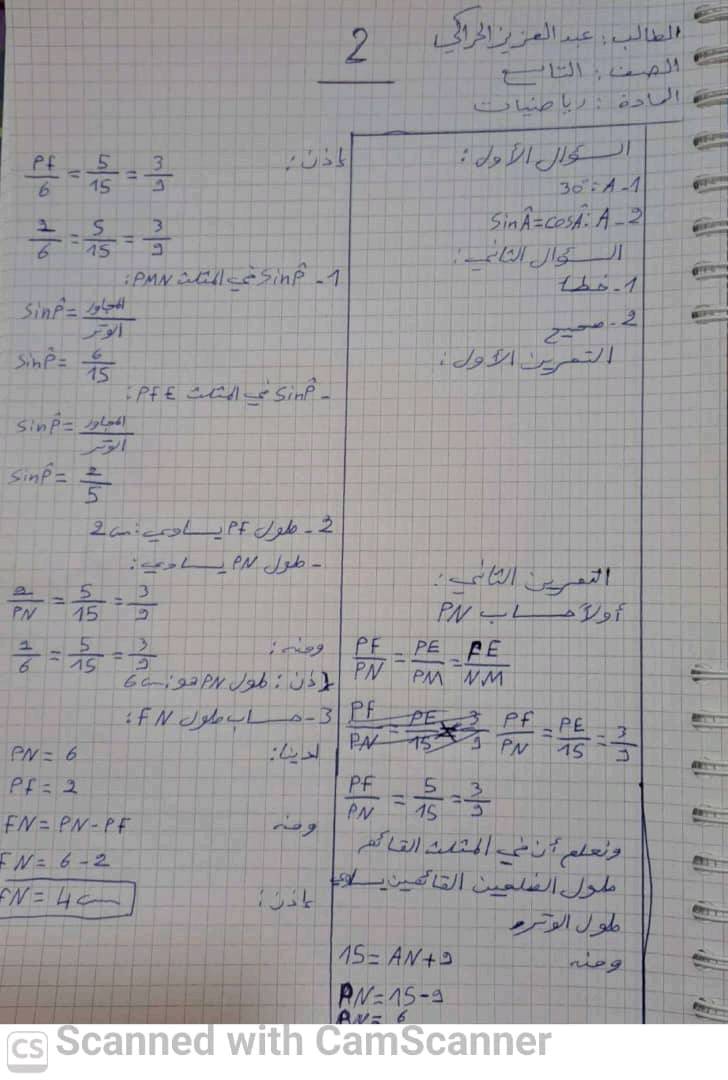 الطالب: عبد العزيز الحراكي
الصف: التاسع
المادة: رياضيات
2
السؤال الأول:
1- A: 30°
2- A: sin Â = cos Â
السؤال الثاني:
1- خطأ
2- صحيح
التمرين الأول:
التمرين الثاني:
أولاً حساب PN
PF/PN = PE/PM = FE/NM
PF/PN = PE/15 = 3/9
PF/PN = PE/15 = 3/9
PF/PN = 5/15 = 3/9
ونعلم أن في المثلث القائم
طول الضلعين القائمين يساوي
طول الوتر
ومنه 15 = AN + 9
PN = 15 - 9
PN = 6
إذن: PF/6 = 5/15 = 3/9
2/6 = 5/15 = 3/9
1- sin P̂ في المثلث PMN:
sin P̂ = المجاور/الوتر
sin P̂ = 6/15
- sin P̂ في المثلث PFE:
sin P̂ = المجاور/الوتر
sin P̂ = 2/5
2- طول PF يساوي: 2 cm
- طول PN يساوي:
2/PN = 5/15 = 3/9
ومنه: 2/6 = 5/15 = 3/9
إذن: طول PN هو: 6 cm
3- حساب طول FN:
لدينا: PN = 6
PF = 2
ومنه FN = PN - PF
FN = 6 - 2
إذن: FN = 4 cm
CS Scanned with CamScanner